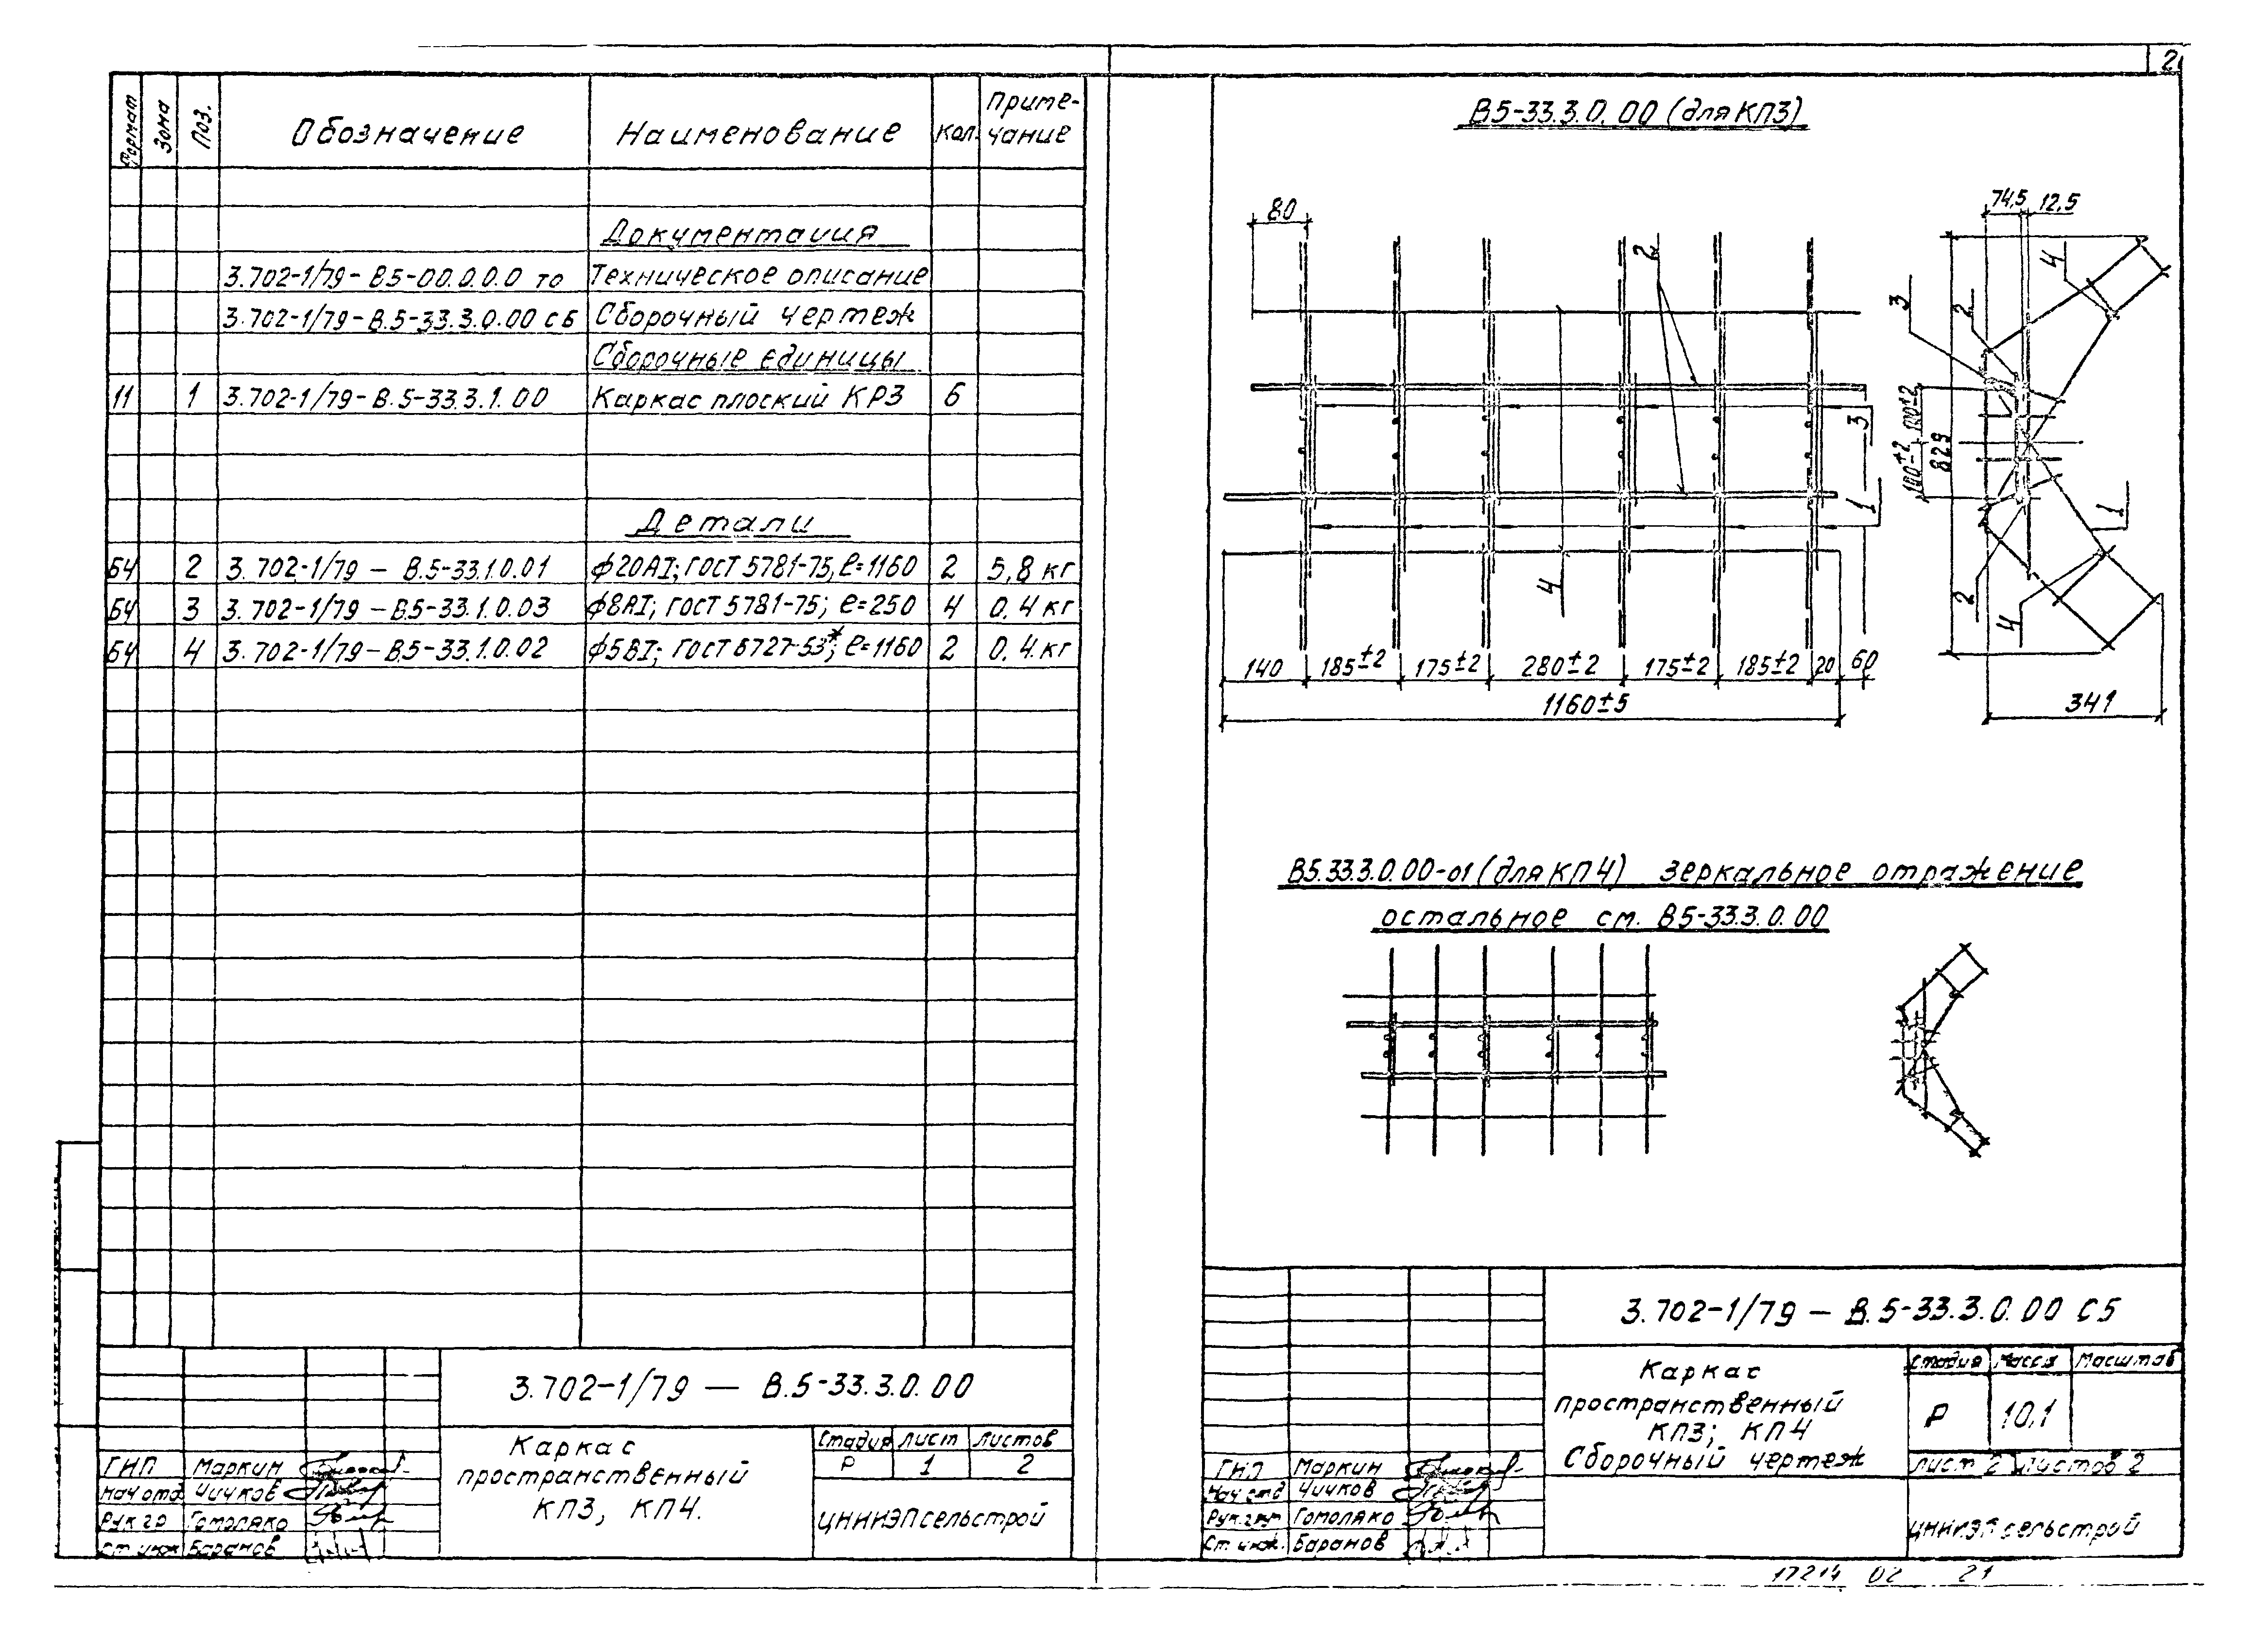 Формат Зона Поз. Обозначение Наименование Кол. Примечание
Документация
3.702-1/79-В5-00.0.0.0 ТО Техническое описание
3.702-1/79-В.5-33.3.0.00 СБ Сборочный чертеж
Сборочные единицы
11 1 3.702-1/79-В.5-33.3.1.00 Каркас плоский КР3 6
Детали
БЧ 2 3.702-1/79 — В.5-33.1.0.01 ф20АI; ГОСТ 5781-75, ℓ=1160 2 5,8 кг
БЧ 3 3.702-1/79 — В.5-33.1.0.03 ф8АI; ГОСТ 5781-75; ℓ=250 4 0.4 кг
БЧ 4 3.702-1/79 — В.5-33.1.0.02 ф5ВI; ГОСТ 6727-53*; ℓ=1160 2 0.4.кг
3.702-1/79 — В.5-33.3.0.00
Каркас
пространственный
КП3, КП4.
Стадия Лист Листов
Р 1 2
ЦНИИЭПсельстрой
ГИП Маркин
Нач отд Чичков
Рук гр Гомоляко
Ст инж Баранов
2
В5-33.3.0.00 (для КП3)
80
2
3
1
4
140 185±2 175±2 280±2 175±2 185±2 20 60
1160±5
74,5 12,5
4
3
2
100±2 100±2
829
1
2
4
341
В5.33.3.0.00-01 (для КП4) зеркальное отражение
остальное см. В5-33.3.0.00
3.702-1/79 — В.5-33.3.0.00 СБ
Каркас
пространственный
КП3; КП4
Сборочный чертеж
Стадия Масса Масштаб
Р 10,1
Лист 2 Листов 2
ЦНИИЭПсельстрой
ГИП Маркин
Нач отд Чичков
Рук.груп Гомоляко
Ст. инж. Баранов
17214 02 21